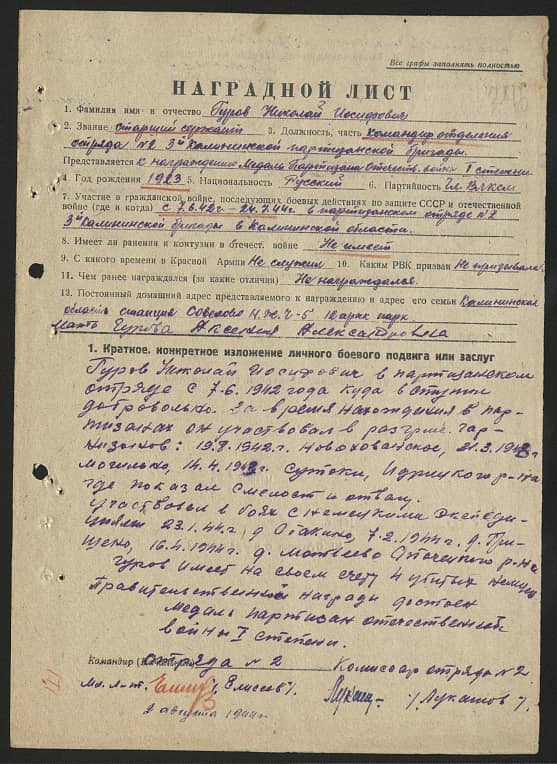 Все графы заполнять полностью
НАГРАДНОЙ ЛИСТ
1. Фамилия имя и отчество Гуров Николай Иосифович
2. Звание старший сержант 3. Должность, часть командир отделения
отряда №2, 3й Калининской партизанской бригады.
Представляется к награждению Медаль Партизана Отечеств. войны I степени
4. Год рождения 1923 5. Национальность Русский 6. Партийность Чл. ВЛКСМ
7. Участие в гражданской войне, последующих боевых действиях по защите СССР и отечественной
войне (где и когда) с 7.6.42г. - 24.7.44г. в партизанском отряде №2
3й Калининской бригады в Калининской области.
8. Имеет ли ранения и контузии в отечест. войне Не имеет
9. С какого времени в Красной Армии Не служил 10. Каким РВК призван Не призывался
11. Чем ранее награждался (за какие отличия) Не награждался.
12. Постоянный домашний адрес представляемого к награждению и адрес его семьи Калининская
область станция
мать Гурова Аксения Александровна
1. Краткое, конкретное изложение личного боевого подвига или заслуг
Гуров Николай Иосифович в партизанском
отряде с 7.6.1942 года куда вступил
добровольно. За время нахождения в пар-
тизанах он участвовал в разгроме гар-
низонов: 19.8.1942г. 21.3.1943г.
14.4.1943г. Сутоки, Идрицкого р-на
где показал смелость и отвагу.
Участвовал в боях с немецкими экспеди-
циями 23.1.44г. д. 7.2.1944г. д. Гри-
16.4.1944г. д. Матвеево Опочецкого р-на
Гуров имеет на своем счету 4 убитых немцев
Правительственной награды достоен
Медаль партизан отечественной
войны I степени.
Командир отряда №2 Комиссар отряда №2
Мл. л-т. /Елисеев/. /Лукашов/
2 августа 1944г
121